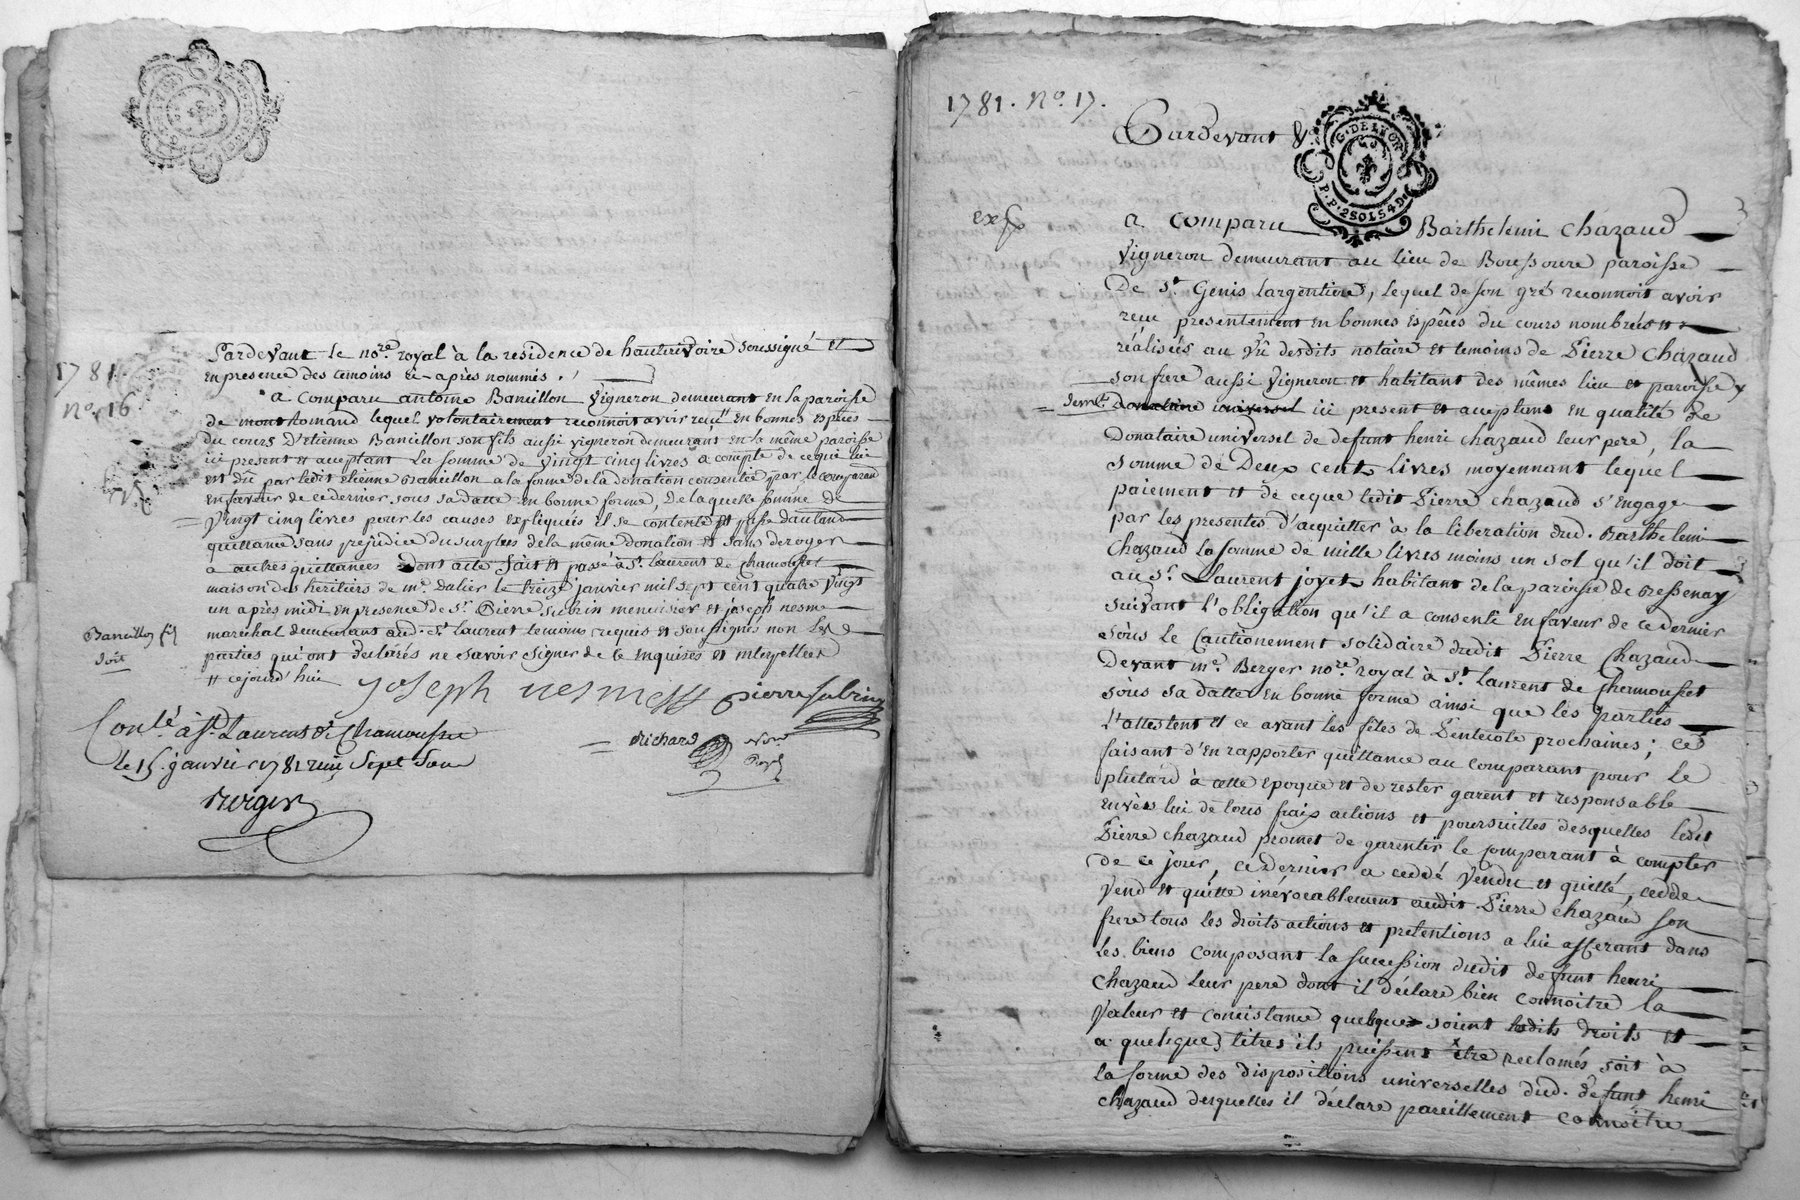 1781.
No. 16
Pardevant le nore. royal à la residence de hauterivoire soussigné et
en presence des temoins ci-après nommés.
a comparu antoine Bancillon vigneron demeurant en la paroisse
de montromand lequel volontairement reconnoit avoir reçu en bonnes espèces
du cours d'etienne Bancillon son fils aussi vigneron demeurant en la même paroisse
ici present et acceptant la somme de vingt cinq livres a compte de ce que lui
est dû par ledit etienne Bancillon a la forme de la donation consentie par le comparant
en faveur de ce dernier sous sa datte en bonne forme, de laquelle somme de
vingt cinq livres pour les causes expliquées il se contente et passe d'autant
quittance sans prejudice du surplus de la même donation et sans deroger
a autres quittances dont acte fait et passé à st. laurent de chamousset
maison des heritiers de me. dalier le treize janvier mil sept cent quatre vingt
un après midi en presence de sr. Pierre subrin menuisier et joseph nesme
marechal demeurant aud. st. laurent temoins requis et soussignés non les
parties qui ont declarés ne savoir signer de ce enquises et interpellées
Bancillon fils
doit
// cejourd'hui
joseph nesme pierre subrin
Conlé. à st. Laurent de Chamousset
le 15. janvier 1781 reçu sept sous
Berger
Richard Nore.
Royal
1781. No. 17.
Pardevant &
G. DE LYON
P.P. 2SOLS4D.
exp
a comparu Barthelemi chazaud
vigneron demeurant au lieu de Boussoure paroisse
de st. Genis l'argentiere, lequel de son gré reconnoit avoir
reçu presentement en bonnes espèces du cours nombrées et
réalisées au vû desdits notaire et temoins de Pierre chazaud
son frere aussi vigneron et habitant des mêmes lieu et paroisse
donataire universel ici present et acceptant en qualité de
donataire universel de defunt henri chazaud leur pere, la
somme de deux cent livres moyennant lequel
paiement et de ce que ledit Pierre chazaud s'engage
par les presentes d'acquitter à la liberation dud. Barthelemi
chazaud la somme de mille livres moins un sol qu'il doit
au sr. Laurent joyet habitant de la paroisse de Bessenay
suivant l'obligation qu'il a consenti en faveur de ce dernier
sous le Cautionement solidaire dudit Pierre Chazaud
devant me. Berger nore. royal à st. Laurent de Chamousset
sous sa datte en bonne forme ainsi que les parties
l'attestent et ce avant les fêtes de Pentecôte prochaines; ce
faisant d'en rapporter quittance au comparant pour le
plutard à cette epoque et de rester garent et responsable
envers lui de tous frais actions et poursuittes desquelles ledit
Pierre chazaud promet de garentir le comparant à compter
de ce jour, ce dernier a ceddé vendu et quitté, cedde
vend et quitte irrévocablement audit Pierre chazaud son
frere tous les droits actions et pretentions a lui afferant dans
les biens composant la succession dudit defunt henri
chazaud leur pere dont il déclare bien connoitre la
valeur et consistance quelques soient lesdits droits et
a quelques titres ils puissent être reclamés soit à
la forme des dispositions universelles dud. defunt henri
chazaud desquelles il déclare pareillement connoitre